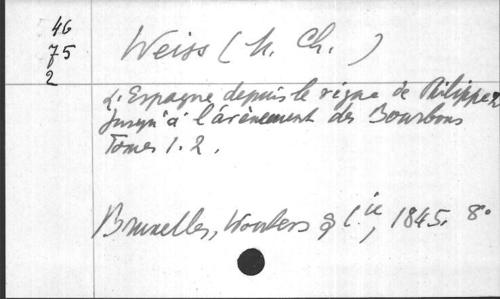 46
75
2
Weiss (M. Ch.)
L'Espagne depuis le règne de Philippe 2
jusqu'à l'avènement des Bourbons
Tomes 1. 2.
Bruxelles, Wouters & C.ie, 1845. 8°